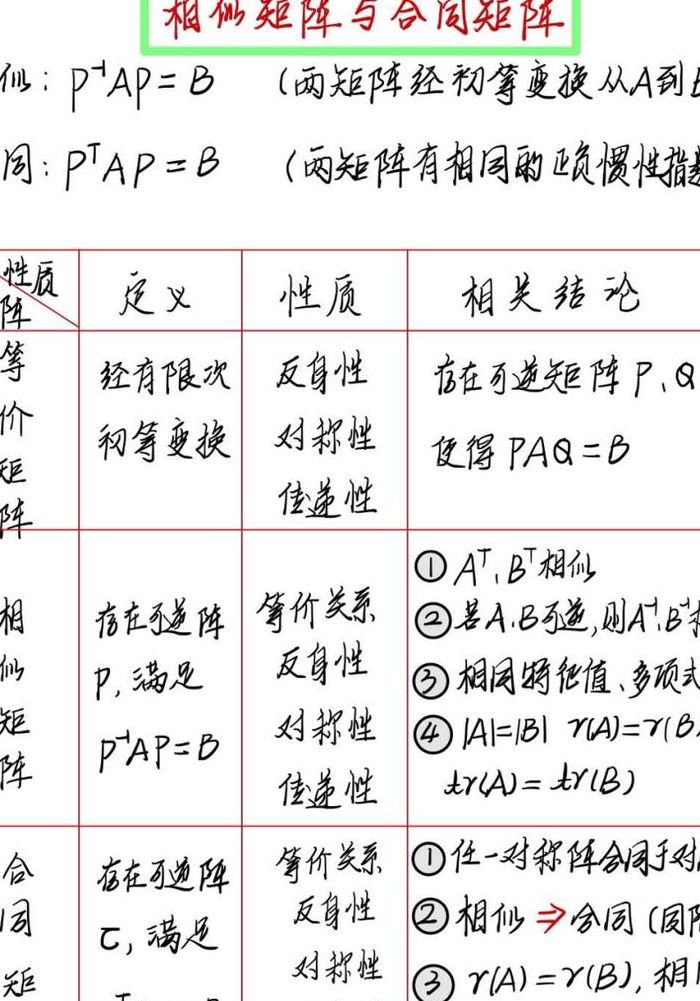 相似矩阵与合同矩阵
似: P⁻¹AP = B (两矩阵经初等变换从A到B
同: PᵀAP = B (两矩阵有相同的正负惯性指数
性质
阵
定义
性质
相关结论
等价矩阵
经有限次
初等变换
反身性
对称性
传递性
存在可逆矩阵 P、Q
使得 PAQ = B
相似矩阵
存在可逆阵
P, 满足
P⁻¹AP = B
等价关系
反身性
对称性
传递性
① Aᵀ、Bᵀ相似
② 若A、B可逆,则A⁻¹、B⁻¹相
③ 相同特征值、多项式
④ |A|=|B| r(A)=r(B
tr(A) = tr(B)
合同矩
存在可逆阵
C, 满足
等价关系
反身性
对称性
① 任一对称阵合同于对
② 相似 ⇒ 合同 (同阶
③ r(A) = r(B), 相